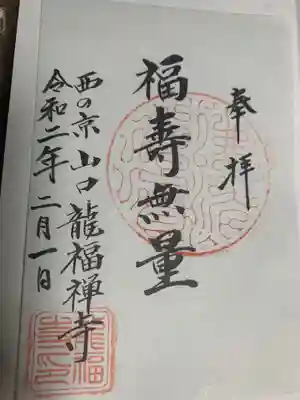 奉拝
福壽無量
西の京山口龍福禅寺
令和二年二月一日